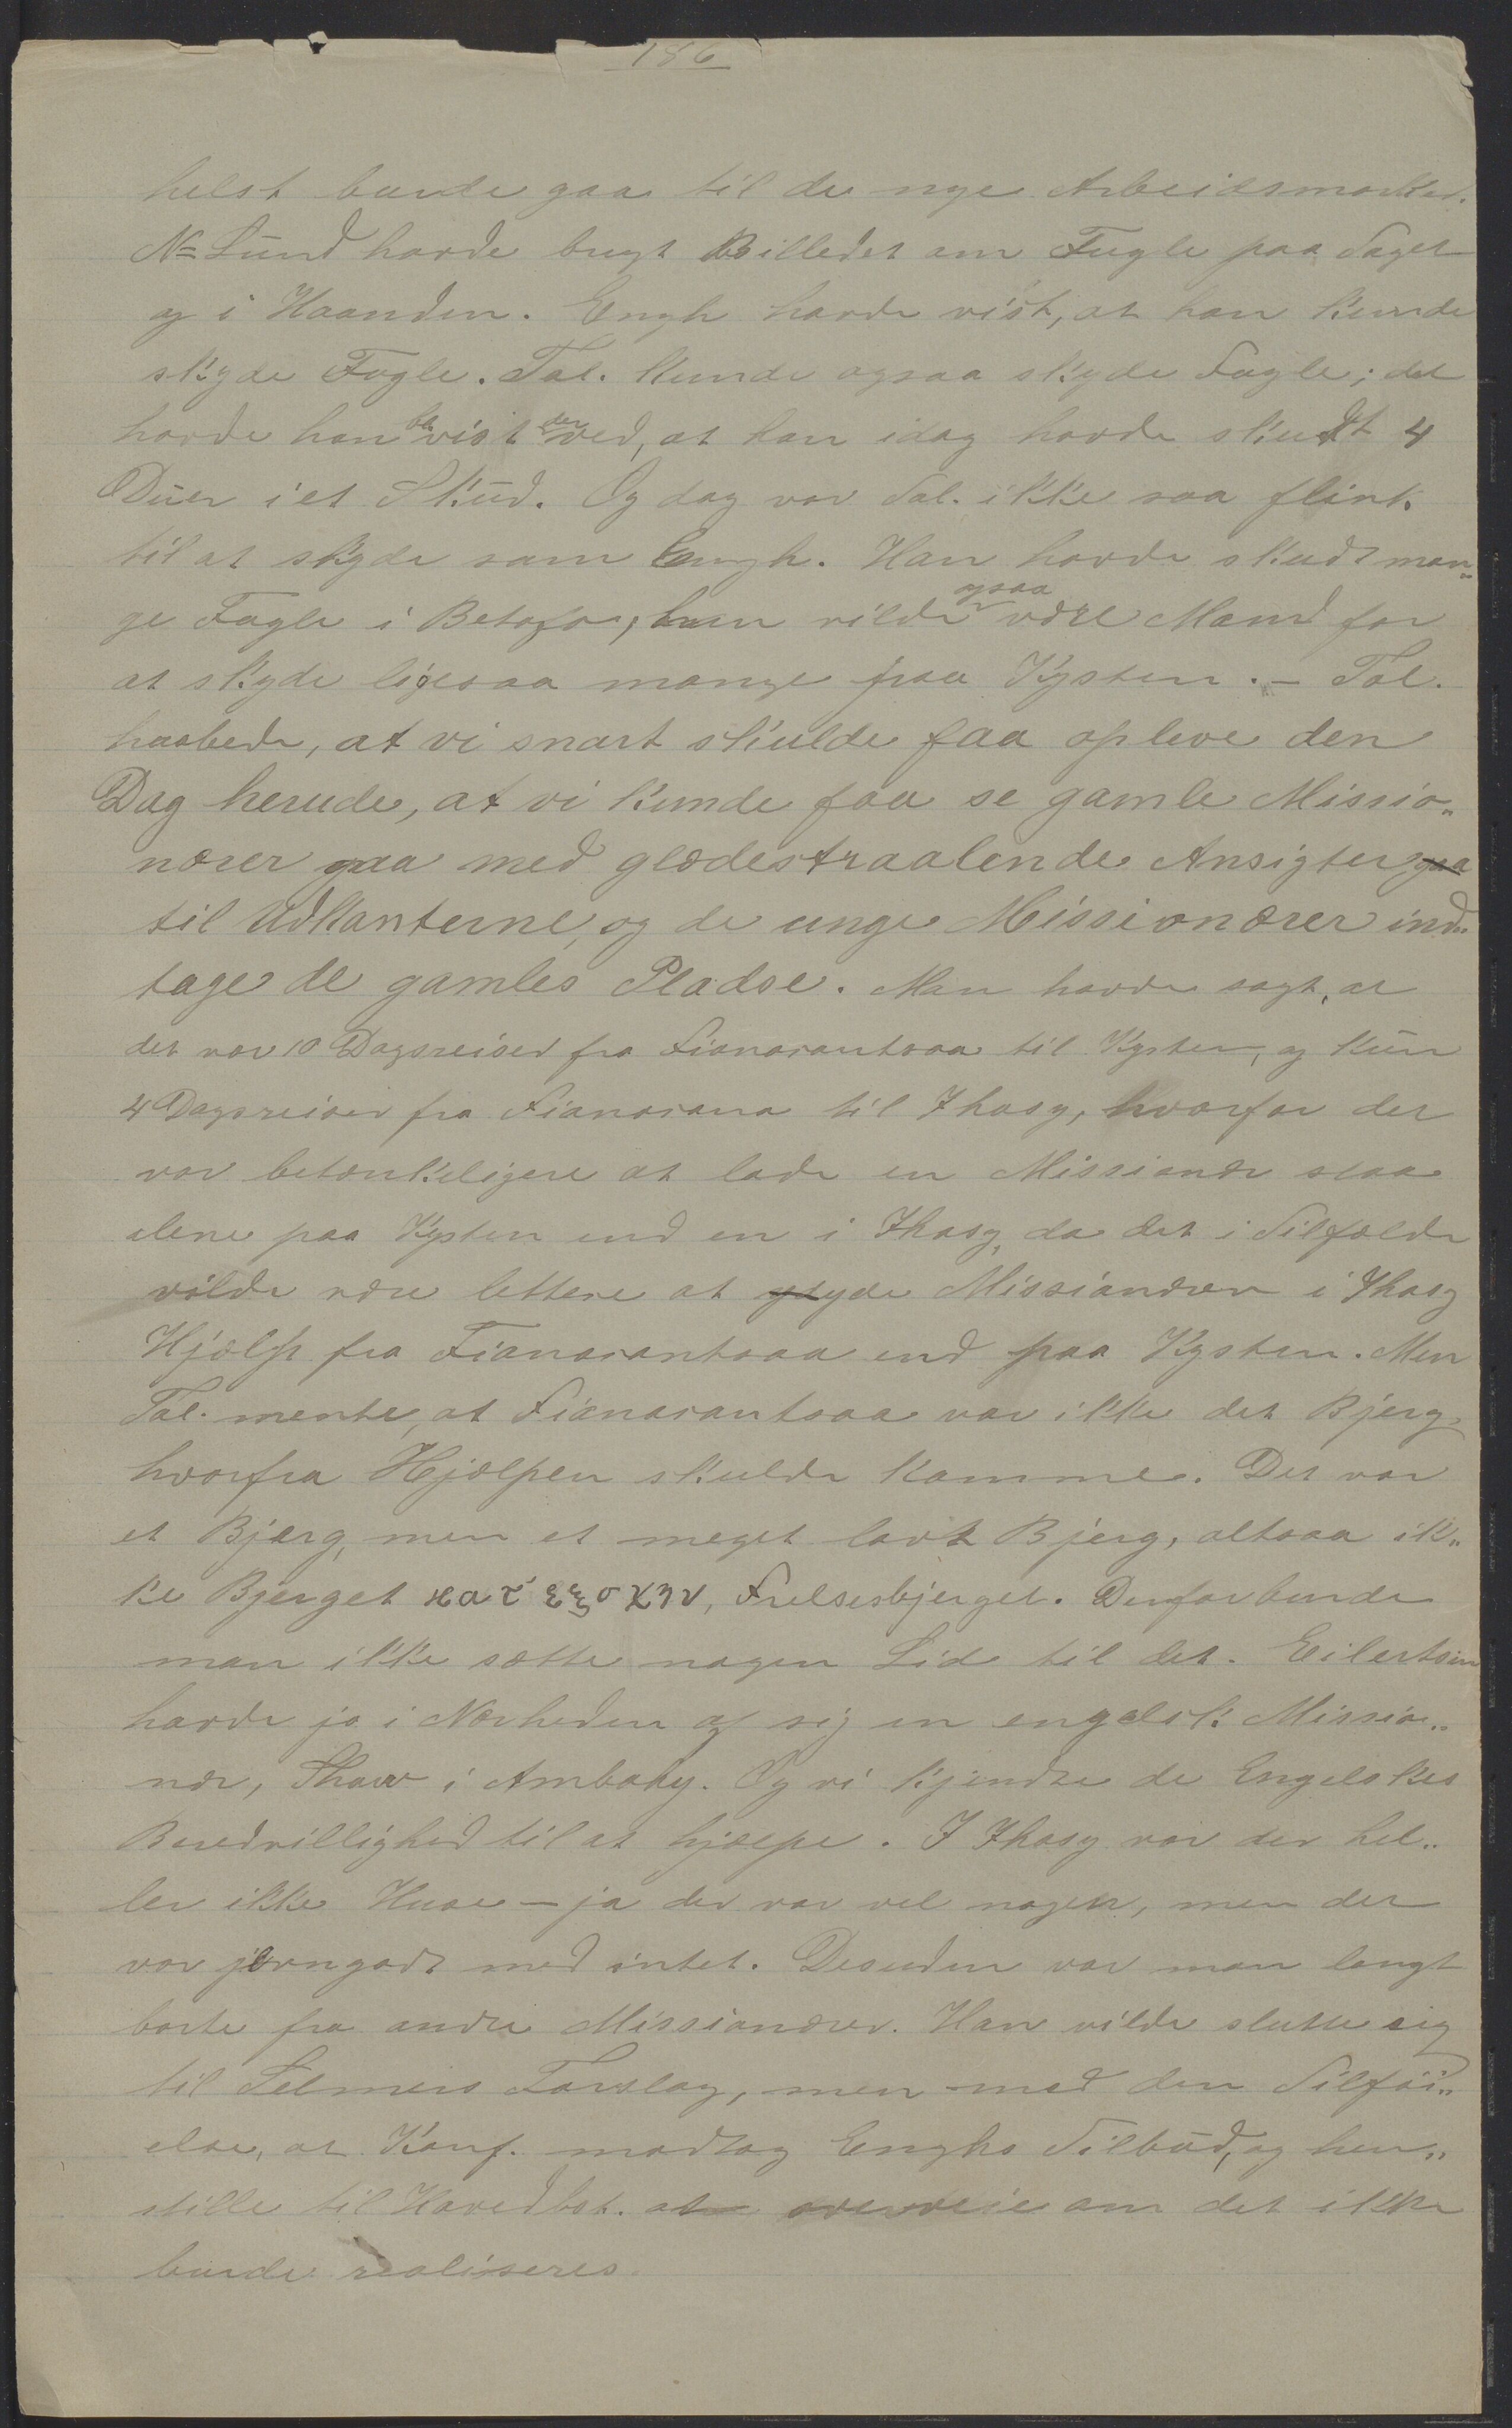 186
helst burde gaa til de nye Arbeidsmarker.
N=Lund havde brugt Billedet om Fugle paa Taget
og i Haanden. Engh havde vist, at han kunde
skyde Fugle. Tal. kunde ogsaa skyde Fugle; det
havde han bevist derved, at han idag havde skudt 4
Duer i et Skud. Og dog var Tal. ikke saa flink
til at skyde som Engh. Han havde skudt man„
ge Fugle i Betafo, han vilde ogsaa være Mand for
at skyde ligesaa mange paa Kysten. – Tal.
haabede, at vi snart skulde faa opleve den
Dag herude, at vi kunde faa se gamle Missio„
nærer gaa med glædestraalende Ansigter gaa
til Udkanterne, og de unge Missionærer ind„
tage de gamles Pladse. Man havde sagt, at
det var 10 Dagsreiser fra Fianarantsoa til Kysten, og kun
4 Dagsreiser fra Fianarana til Ihosy, hvorfor det
var betænkeligere at lade en Missionær staa
alene paa Kysten end en i Ihosy, da det i Tilfælde
vilde være lettere at yde Missionæren i Ihosy
Hjælp fra Fianarantsoa end paa Kysten. Men
Tal. mente, at Fianarantsoa var ikke det Bjerg,
hvorfra Hjælpen skulde komme. Det var
et Bjærg, men et meget lavt Bjerg, altsaa ik„
ke Bjerget κατ' εξοχην, Frelsesbjerget. Derfor burde
man ikke sætte nogen Lid til det. Eilertsen
havde jo i Nærheden af sig en engelsk Missio„
nær, Shaw i Ambohy. Og vi kjendte de Engelskes
Beredvillighed til at hjælpe. I Ihosy var der hel„
ler ikke Huse – ja der var vel nogen, men det
var jevngodt med intet. Desuden var man langt
borte fra andre Missionærer. Han vilde slutte sig
til Selmers Forslag, men med den Tilföi„
else, at Konf. modtog Enghs Tilbud, og hen„
stille til Hovedbst. at overveie om det ikke
burde realiseres.